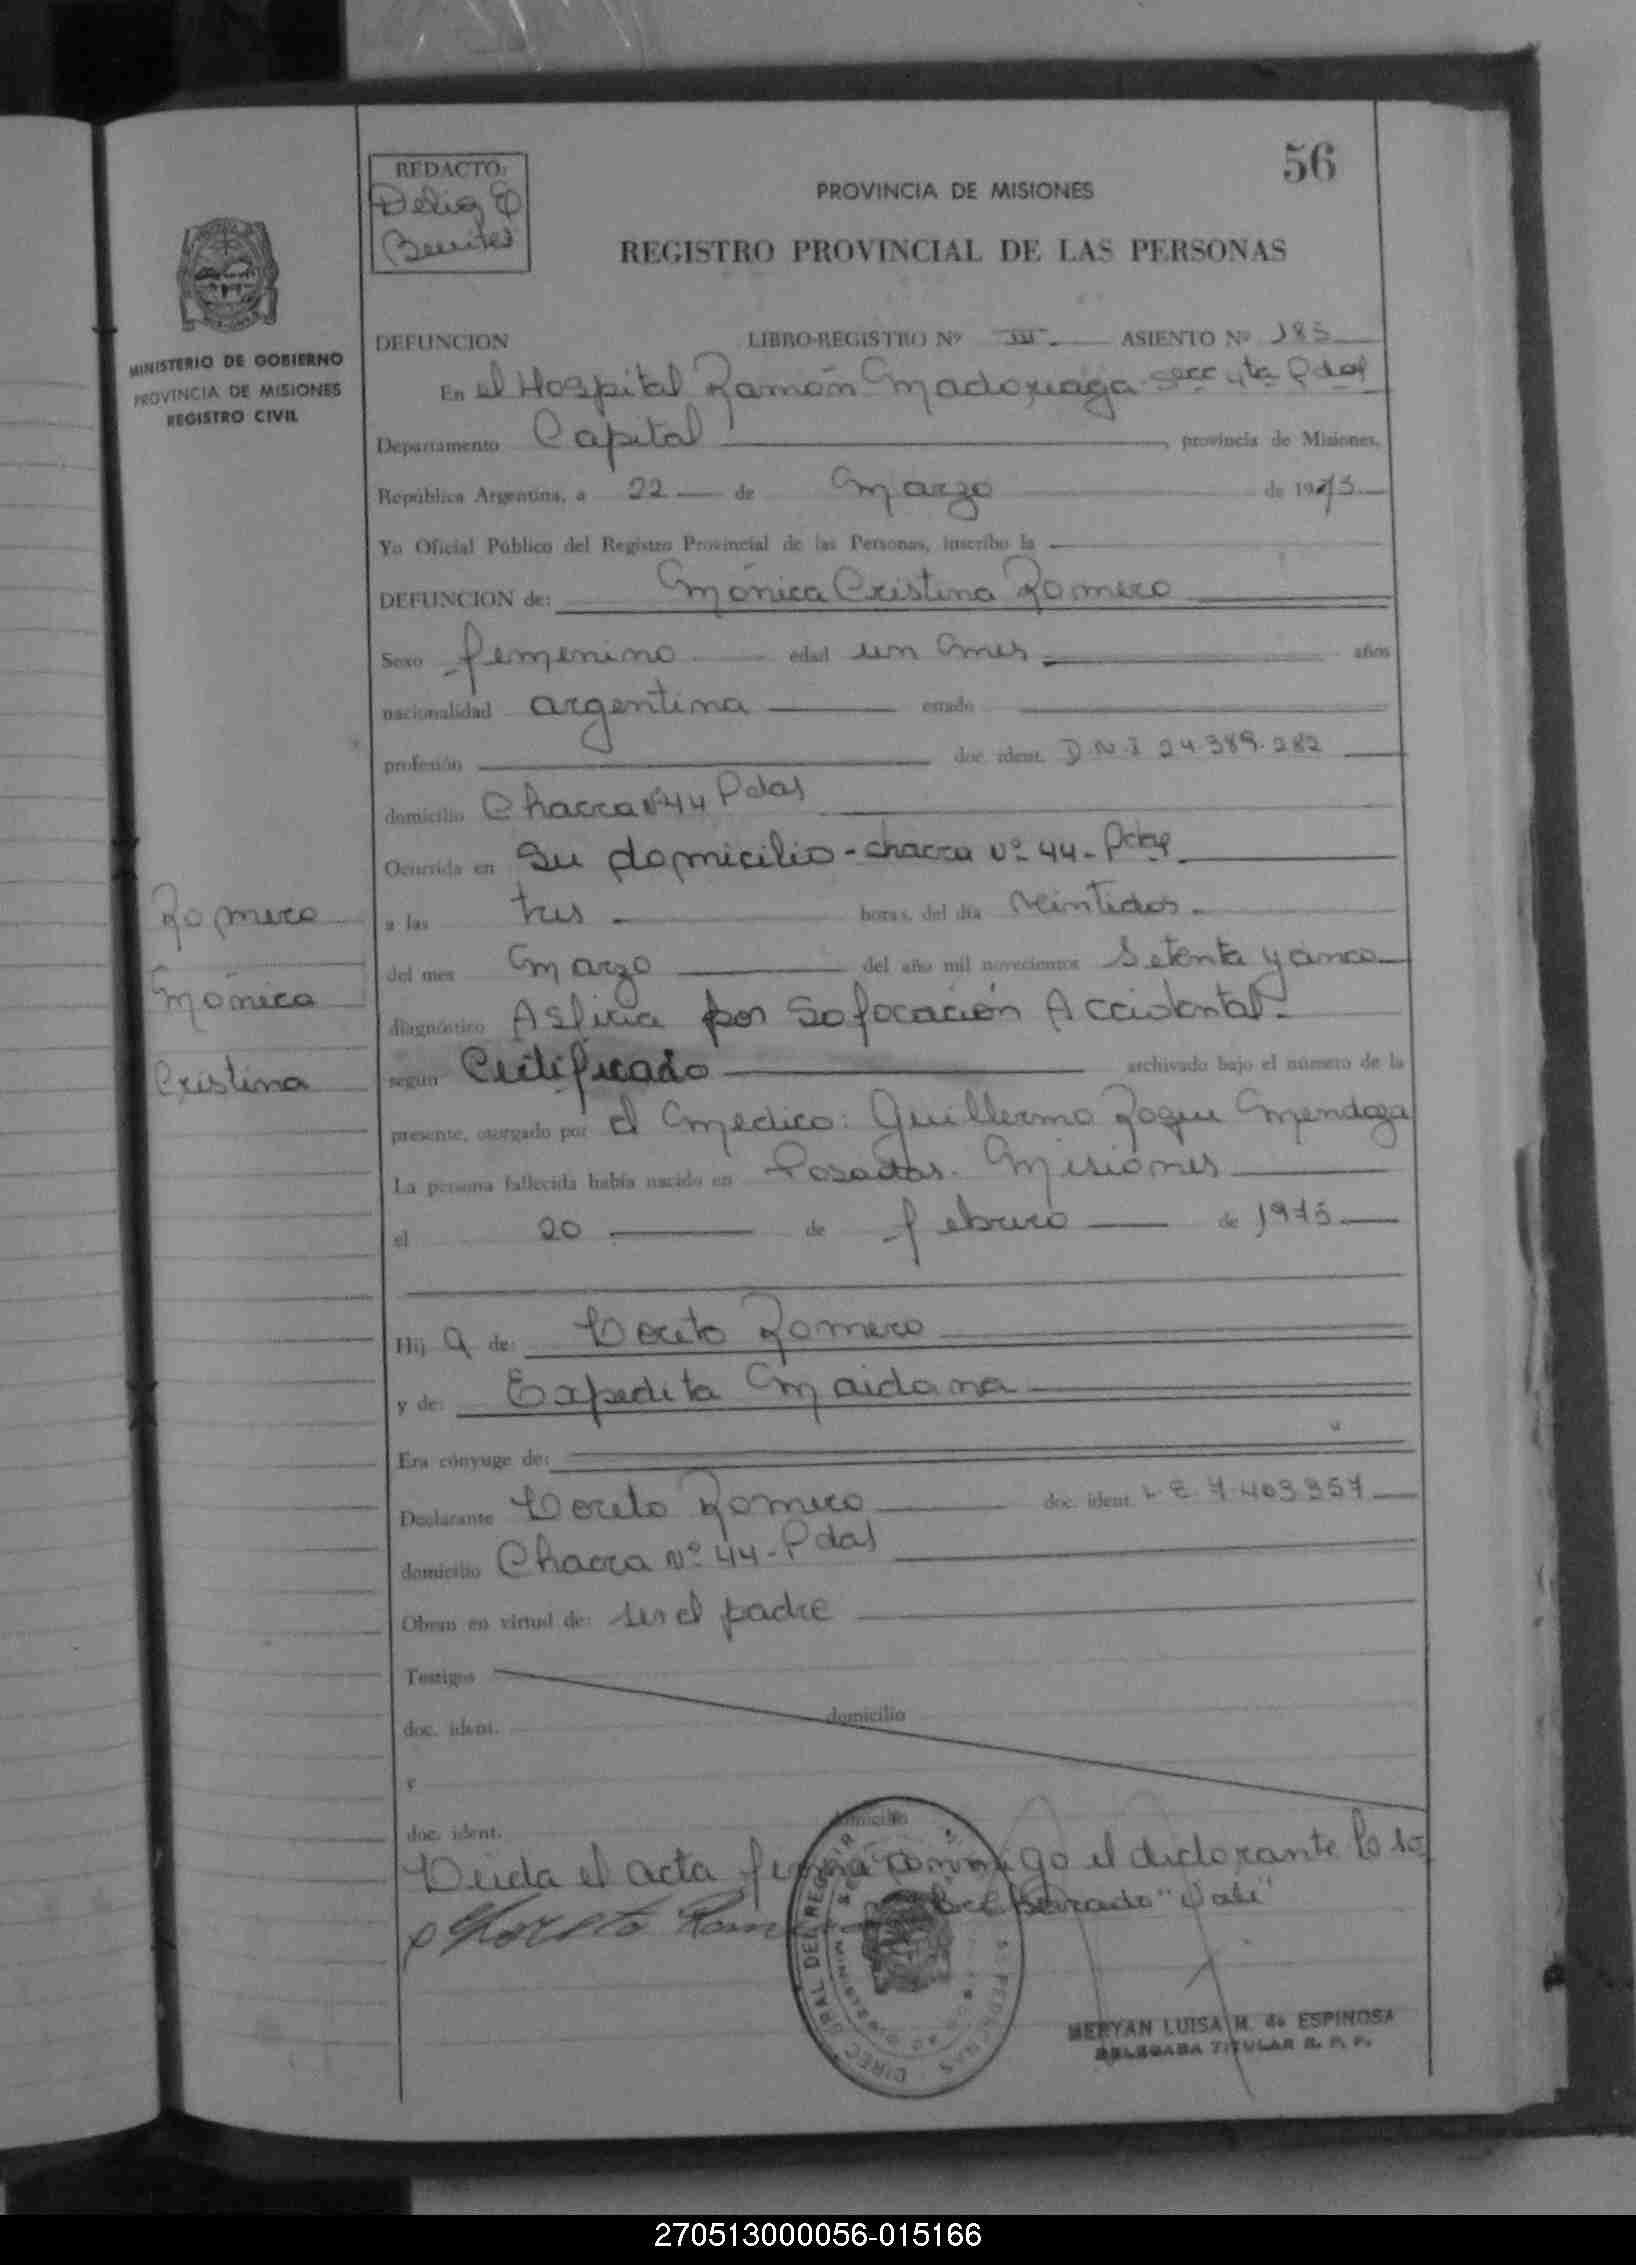 56
REDACTO:
Delia E
Benitez
PROVINCIA DE MISIONES
REGISTRO PROVINCIAL DE LAS PERSONAS
MINISTERIO DE GOBIERNO
PROVINCIA DE MISIONES
REGISTRO CIVIL
DEFUNCION LIBRO-REGISTRO Nº III ASIENTO Nº 185
En el Hospital Ramón Madoriaga Secc 4ta Pdas
Departamento Capital, provincia de Misiones,
República Argentina, a 22 de Marzo de 1975
Yo Oficial Público del Registro Provincial de las Personas, inscribo la
DEFUNCION de: Mónica Cristina Romero
Sexo femenino edad un mes años
nacionalidad argentina estado
profesión doc. ident. D.N.I 24.389.282
domicilio Chacra Nº 44 Pdas
Ocurrida en su domicilio - chacra Nº 44 - Pdas
a las tres horas, del día veintidos
del mes Marzo del año mil novecientos setenta y cinco
diagnóstico Asfixia por Sofocación Accidental
según Certificado archivado bajo el número de la
presente, otorgado por el Médico: Guillermo Roque Mendoza
La persona fallecida había nacido en Posadas. Misiones
el 20 de febrero de 1975
Romero
Mónica
Cristina
Hij a de: Loreto Romero
y de: Expedita Maidana
Era cónyuge de:
Declarante Loreto Romero doc. ident. L.E. 7.403.957
domicilio Chacra Nº 44 - Pdas
Obran en virtud de: ser el padre
Testigos
doc. ident. domicilio
y
doc. ident. domicilio
Leida el acta firma conmigo el declarante lo so
bre borrado "Vale"
Loreto Romero
MERYAN LUISA M. de ESPINOSA
DELEGADA TITULAR R. P. P.
270513000056-015166